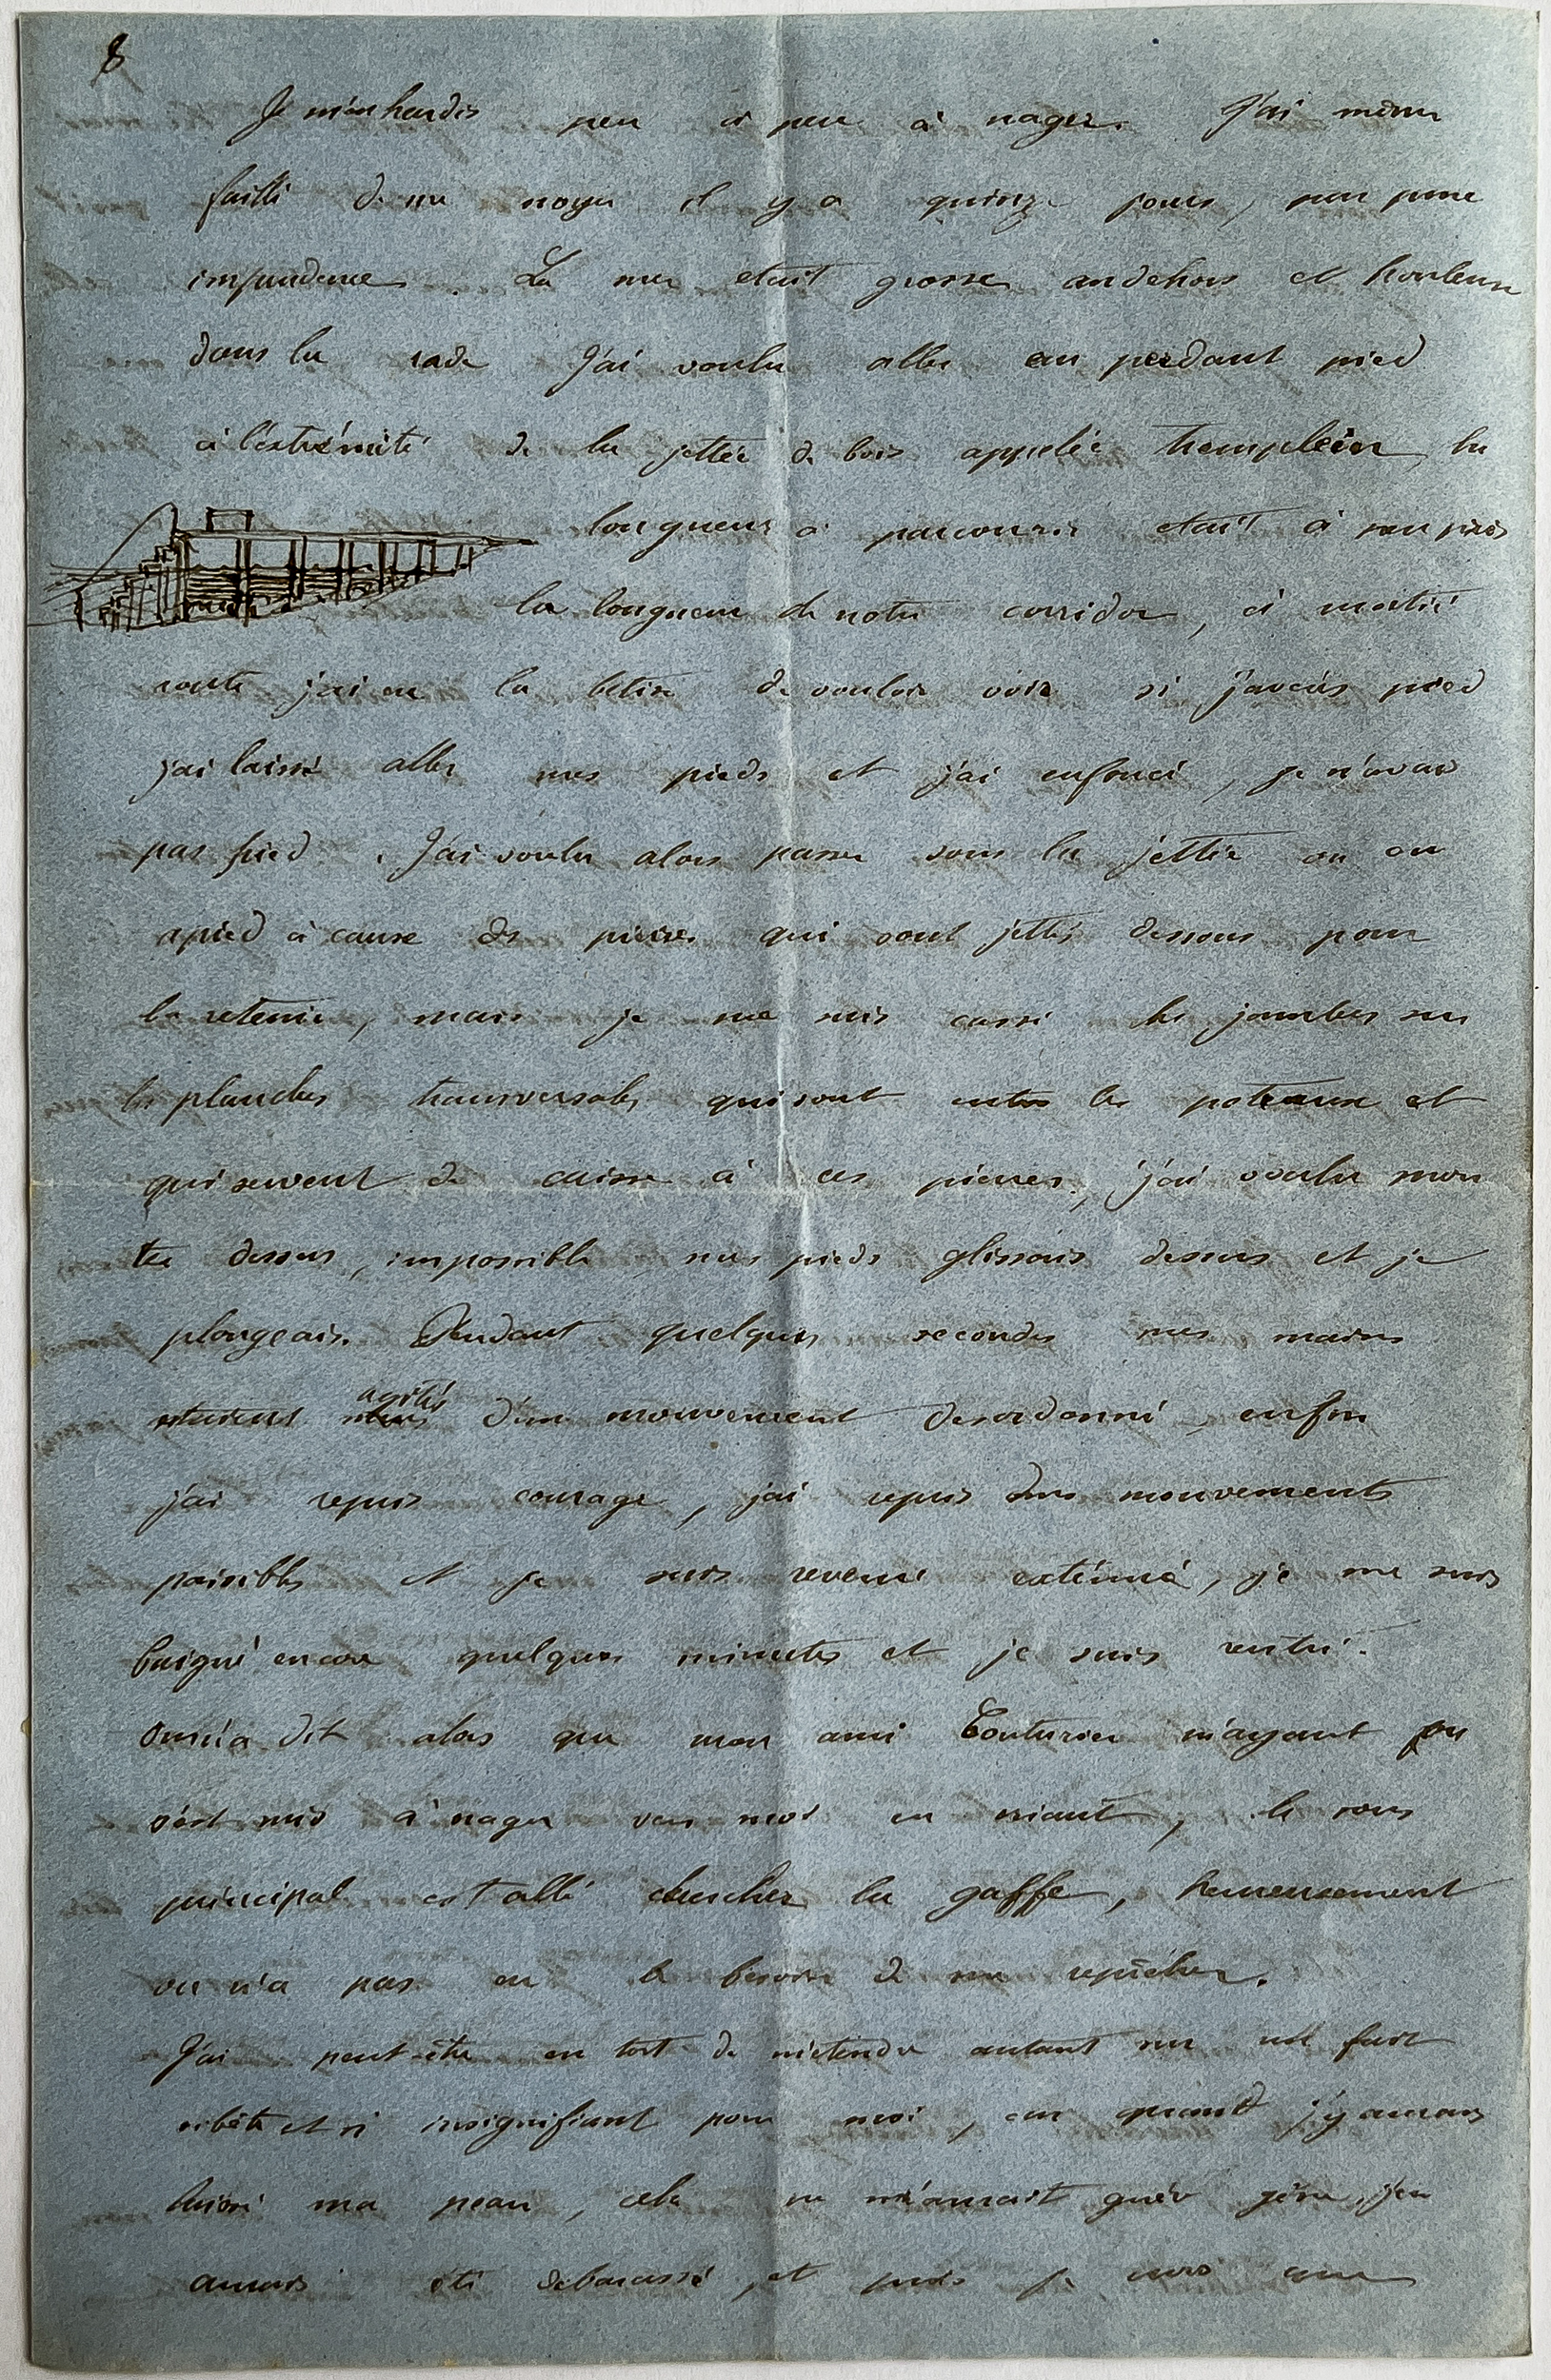 8
Je m'enhardis peu à peu à nager. J'ai même
failli de me noyer il y a quinze jours, par pure
imprudence. La mer etait grosse au dehors et houleuse
dans la rade J'ai voulu aller en perdant pied
à l'extrémité de la jettée de bois appelée tremplein, la
longueur à parcourir etait à peu près
la longueur de notre corridor, à moitié
route j'ai eu la betise de vouloir voir si j'avais pied
j'ai laissé aller mes pieds et j'ai enfoncé, je n'avais
pas pied. J'ai voulu alors passer sous la jettée ou on
a pied à cause des pierres qui sont jettés dessous pour
la retenir, mais je me suis cassé les jambes sur
les planches transversales qui sont entre les poteaux et
qui servent de caisse à ces pierres, j'ai voulu mon
ter dessus, impossible mes pieds glissais dessus et je
plongeais. Pendant quelques secondes mes mains
etaient agités d'un mouvement desordonné, enfin
j'ai repris courage, j'ai repris des mouvements
paisibles et je suis revenu exténué, je me suis
baigné encore quelques minutes et je suis rentré.
On m'a dit alors que mon ami Couturier m'ayant vu
s'est mis à nager vers moi en criant, le sous
principal est allé chercher la gaffe, heureusement
on n'a pas eu le besoin de me repêcher.
J'ai peut-être eu tort de m'etendre autant sur un fait
si bête et si insignifiant pour moi, car quand j'y aurais
laissé ma peau, cela ne m'aurait guère gêné, j'en
aurais été debarassé, et puis je crois que